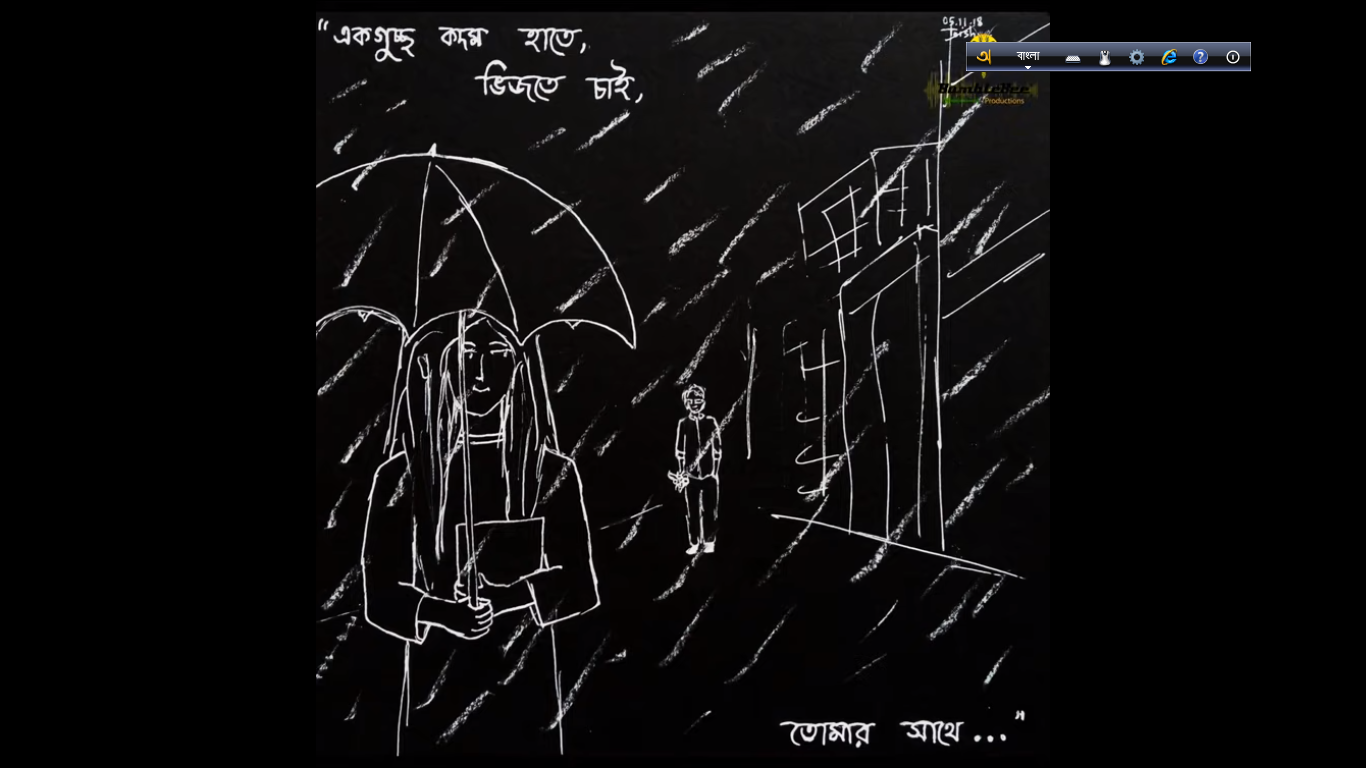 "একগুচ্ছ কদম হাতে,
ভিজতে চাই,
05.11.18
বাংলা
BumbleBee
Productions
তোমার সাথে..."